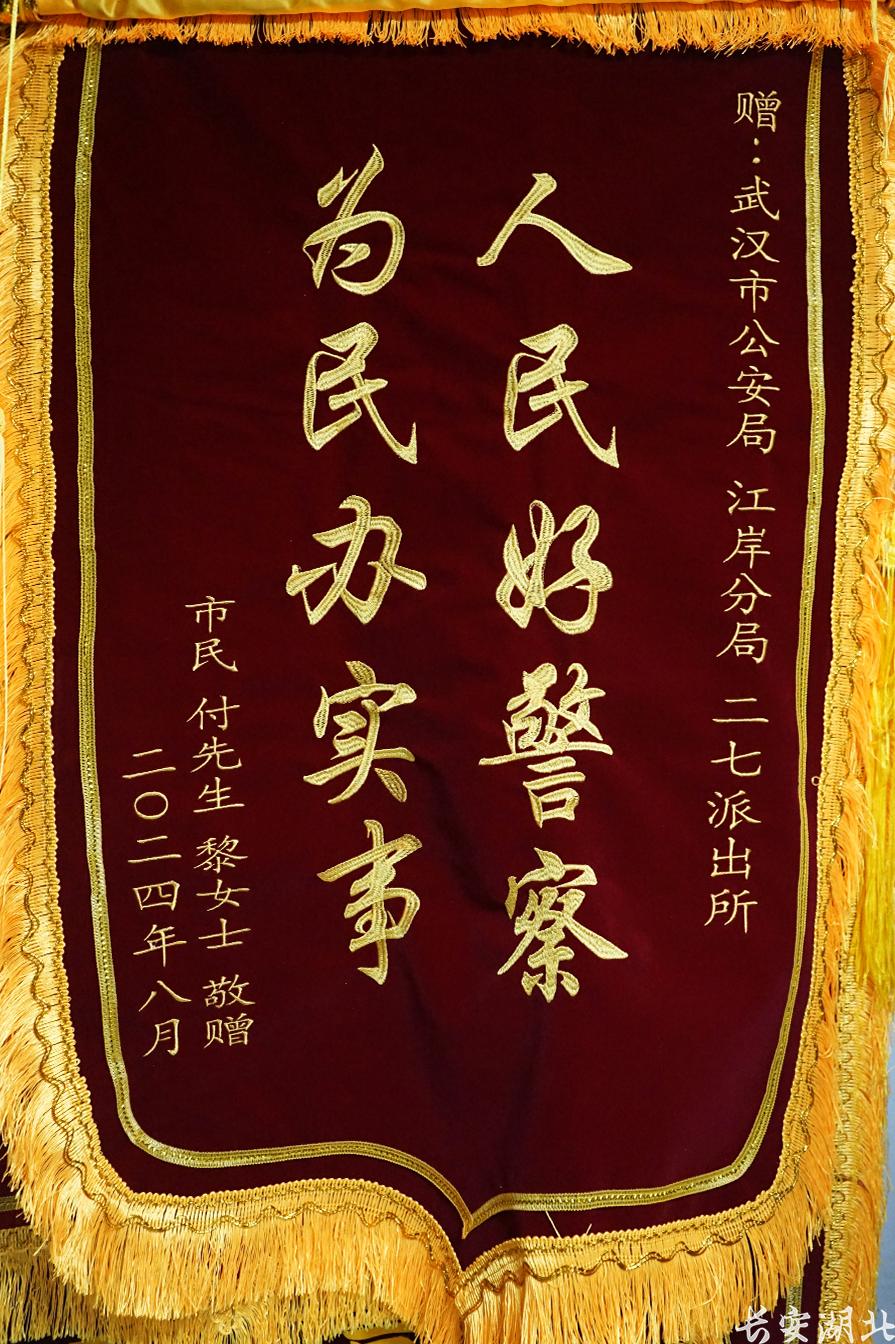 赠：武汉市公安局 江岸分局 二七派出所
人民好警察
为民办实事
市民 付先生 黎女士 敬赠
二〇二四年八月
长安湖北